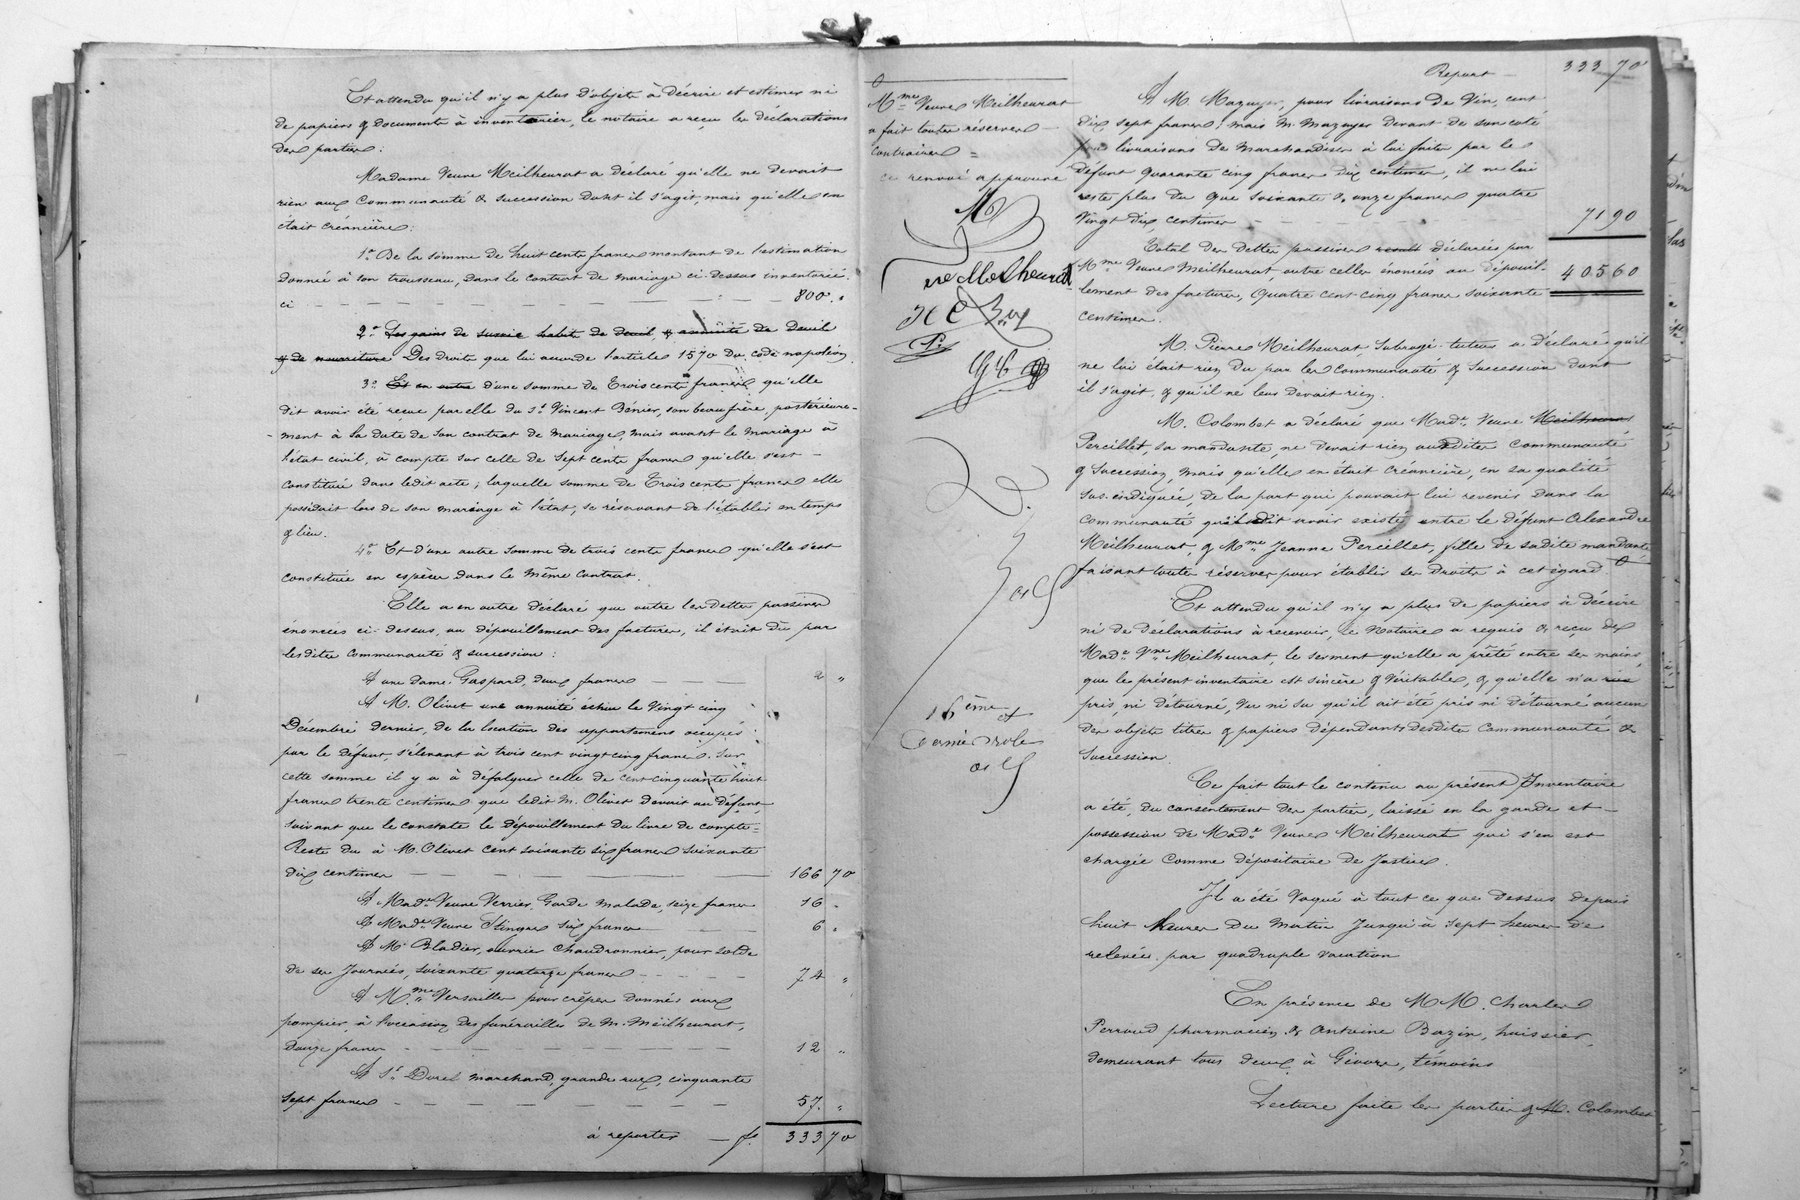 Et attendu qu'il n'y a plus d'objets à décrire et estimer ni
de papiers & documents à inventorier, le notaire a reçu les déclarations
des parties :
Madame Veuve Meilheurat a déclaré qu'elle ne devait
rien aux Communauté & succession dont il s'agit, mais qu'elle en
était créancière :
1° De la somme de huit cents francs montant de l'estimation
donnée à son trousseau, dans le contrat de mariage ci-dessus inventorié.
ci — — — — — — — — — 800. "
2° Les gains de survie habit de deuil, & annuité de Deuil
& de nourriture Des droits que lui accorde l'article 1570 Du Code napoléon
3° Et en outre d'une somme de Trois cents francs qu'elle
dit avoir été reçue par elle du Sr Vincent Bénier, son beau frère, postérieure-
ment à la date de son contrat de mariage, mais avant le mariage à
l'état civil, à compte sur celle de sept cents francs qu'elle s'est
constituée dans ledit acte ; laquelle somme de Trois cents francs elle
possédait lors de son mariage à l'état, se réservant de l'établir en temps
& lieu.
4° Et d'une autre somme de trois cents francs qu'elle s'est
constituée en espèces dans le même contrat.
Elle a en outre déclaré que outre les dettes passives
énoncées ci-dessus, au dépouillement des factures, il était dû par
lesdites communauté & succession :
A une dame Gaspard, deux francs — — — 2 "
A M. Olivet une annuité échue le Vingt cinq
Décembre dernier, de la location des appartements occupés
par le défunt, s'élevant à trois cent vingt cinq francs. Sur
cette somme il y a à défalquer celle de cent cinquante huit
francs trente centimes que ledit M. Olivet devait au défunt
suivant que le constate le dépouillement du livre de compte =
Reste du à M. Olivet Cent soixante six francs soixante
dix centimes — — — — — 166 70
A Made Veuve Verrier, Garde malade, seize francs 16 "
A Made Veuve Stingre six francs — — 6 "
A M. Bladier, ouvrier chaudronnier, pour solde
de ses Journées, soixante quatorze francs — — — 74 "
A Mme Versailles pour crêpes donnés aux
pompiers, à l'occasion des funérailles de M. Meilheurat,
douze francs — — — — — 12 "
A Sr Durel marchand, grande rue, cinquante
sept francs — — — — — 57. "
à reporter — f. 333 70
Mme Veuve Meilheurat
a fait toutes réserves
contraires =
ce renvoi approuvé
M
ve Meilheurat
16ème et
Dernier rôle
Report — 333 70
A M. Mazuyer, pour livraisons de Vin, cent
dix sept francs ; mais M. Mazuyer devant de son coté
pour livraisons de Marchandises à lui faites par le
défunt quarante cinq francs dix centimes, il ne lui
reste plus du que soixante & onze francs quatre
Vingt dix centimes — — — 71 90
Total des dettes passives déclarées par
Mme Veuve Meilheurat, outre celles énoncées au dépouil- 405 60
lement des factures, Quatre cent cinq francs soixante
centimes.
M. Pierre Meilheurat, Subrogé-tuteur a déclaré qu'il
ne lui était rien du par les Communauté & Succession dont
il s'agit, & qu'il ne leur devait rien.
M. Colombet a déclaré que Made Veuve Meilheurat
Percillet, sa mandante, ne devait rien auxdites communauté
& succession, mais qu'elle en était créancière, en sa qualité
sus-indiquée, de la part qui pouvait lui revenir dans la
communauté qu'il dit avoir existé entre le défunt Alexandre
Meilheurat, & Mme Jeanne Percillet, fille de sadite mandante,
faisant toutes réserves pour établir ses droits à cet égard.
Et attendu qu'il n'y a plus de papiers à décrire
ni de déclarations à recevoir, le Notaire a requis & reçu de
Made Vve Meilheurat, le serment qu'elle a prêté entre ses mains,
que le présent inventaire est sincère & Véritable, & qu'elle n'a rien
pris, ni détourné, vu ni su qu'il ait été pris ni détourné aucun
des objets titres & papiers dépendants desdites Communauté &
Succession.
Ce fait tout le contenu au présent Inventaire
a été, du consentement des parties, laissé en la garde et
possession de Made Veuve Meilheurat qui s'en est
chargée comme dépositaire de Justice.
Il a été Vaqué à tout ce que dessus depuis
huit heures du Matin Jusqu'à sept heures de
relevée par quadruple vacation
En présence de MM. Charles
Perraud pharmacien & Antoine Bazin, huissier,
demeurant tous deux à Givors, témoins
Lecture faite les parties & M. Colombet